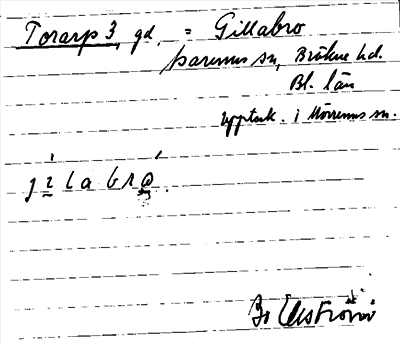 Torarp 3, gd, = Gillabro
Asarums sn, Bräkne hd.
Bl. län
uppteck. i Mörrums sn.
jilabrω.
Bo Westström